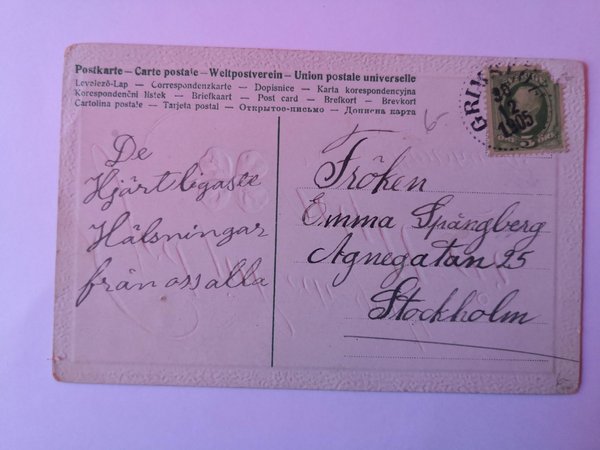 Postkarte – Carte postale – Weltpostverein – Union postale universelle
Levelező-Lap – Correspondenzkarte – Dopisnice – Karta korespondencyjna
Korespondenční lístek – Briefkaart – Post card – Brefkort – Brevkort
Cartolina postale – Tarjeta postal – Открытое-письмо – Дописна карта
De
Hjärtligaste
Hälsningar
från oss alla
Fröken
Emma Spångberg
Agnegatan 25
Stockholm
6-
12
1905
5